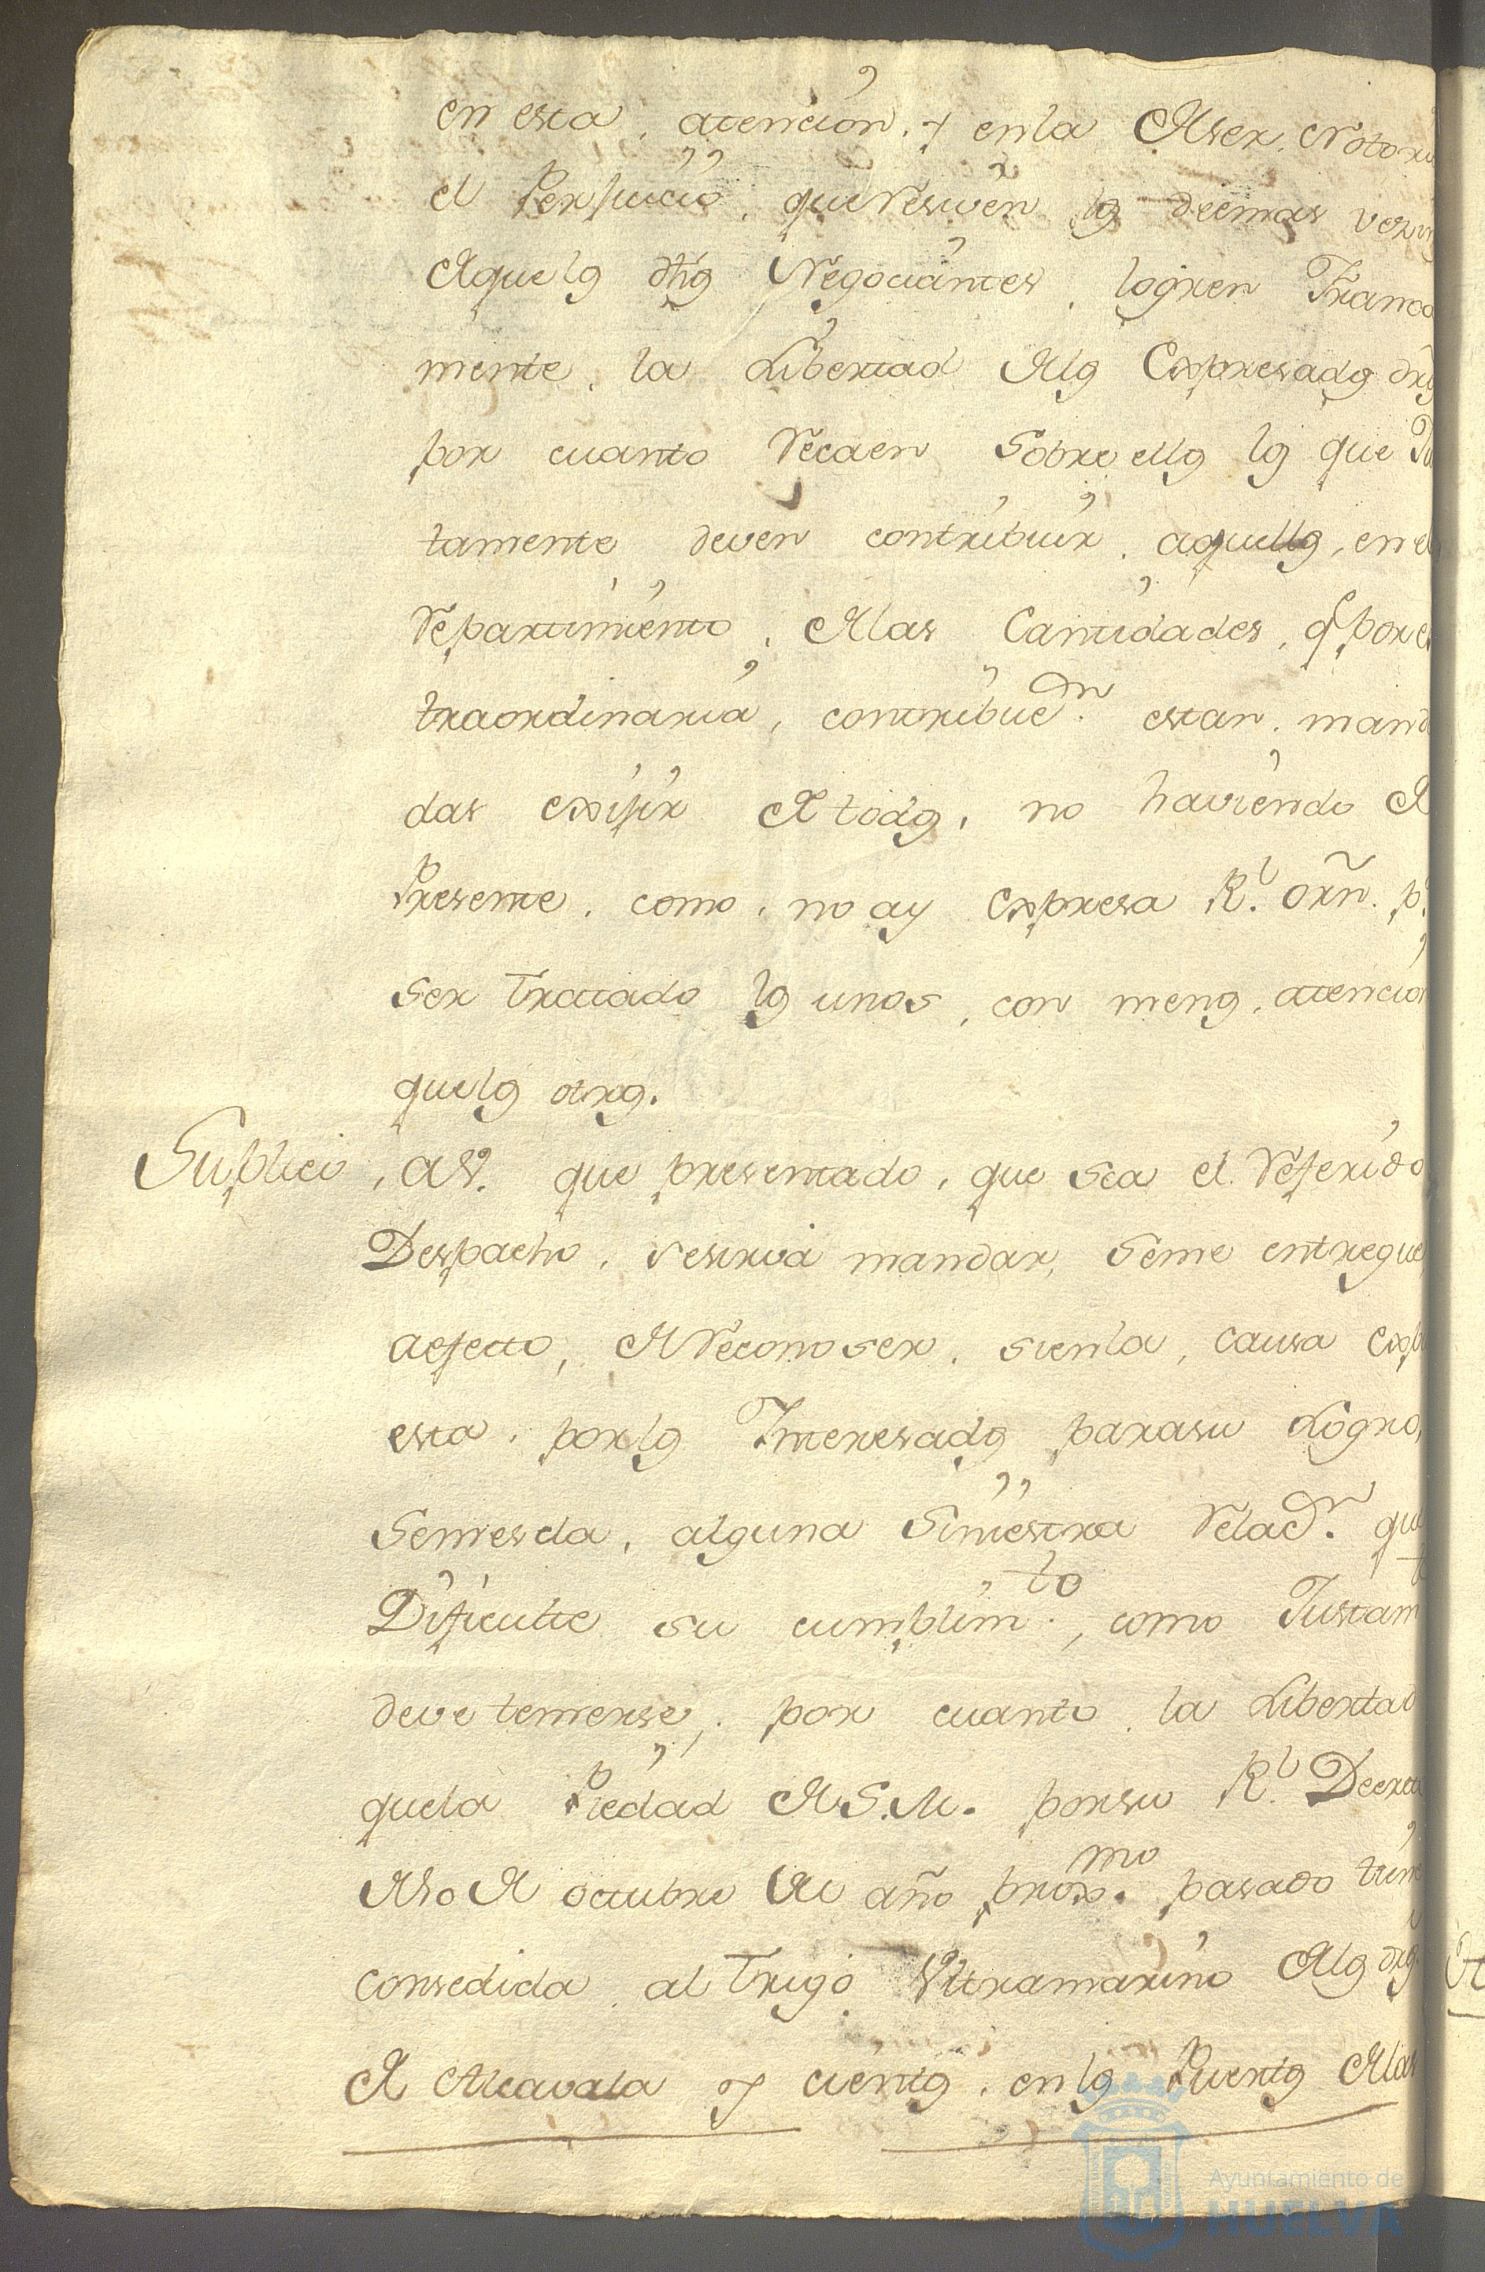 en esta, atencion, y en la de ser, Notori
el Perjuicio, que resiven los deemas vezin
de que los dhos Negociantes, logren Franca
mente, la Livertad de los Expresados dros
por cuanto recaen Sobre ellos los que Jus
tamente deven contribuir, aquellos, en el
repartimiento, de las Cantidades, q por ex
traordinaria, contribucn. estan, manda
das exijir de todos, no haviendo de
Presente, como, no ay expresa Rl. orn. pa
ser tratado los unos, con menos, atencion
que los otros.
Suplico, a V. que presentado, que sea el referido
Despacho, se sirva mandar, se me entregue,
a efecto, de reconoser, si en la, causa exp
esta, por los Interesados para su Logro,
se mescla, alguna Siniestra relacn. que
Dificulte su cumplimto., como Justamte
deve temerse, por cuanto, la Libertad
que la Piedad de S.M. por su Rl. Decreto
de 10 de octubre de año proxmo. pasado tiene
consedida, al Trigo Vltramarino de los dros
de Alcavala y cientos, en los Puertos de las
Ayuntamiento de
HUELVA